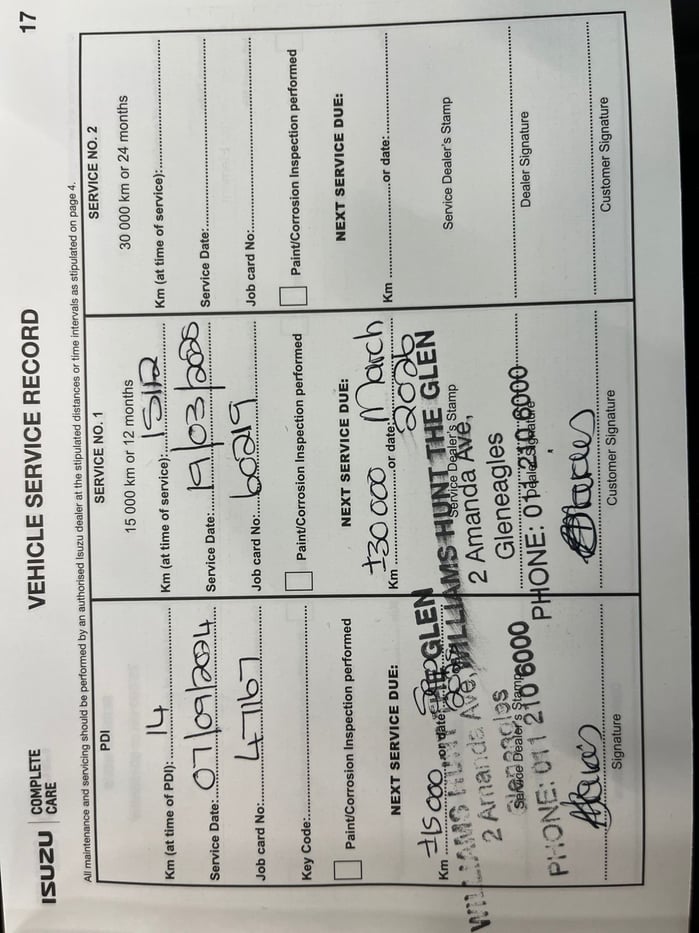 17
ISUZU COMPLETE CARE
VEHICLE SERVICE RECORD
All maintenance and servicing should be performed by an authorised Isuzu dealer at the stipulated distances or time intervals as stipulated on page 4.
PDI
Km (at time of PDI): 14
Service Date: 07/09/2024
Job card No: 47167
Key Code:
Paint/Corrosion Inspection performed
NEXT SERVICE DUE:
Km ±15 000 or date:
WILLIAMS HUNT THE GLEN
2 Amanda Ave,
Gleneagles
Service Dealer's Stamp
PHONE: 011 210 6000
Signature
SERVICE NO. 1
15 000 km or 12 months
Km (at time of service): 15112
Service Date: 19/03/2025
Job card No: 60219
Paint/Corrosion Inspection performed
NEXT SERVICE DUE:
Km ±30 000 or date: March 2026
WILLIAMS HUNT THE GLEN
Service Dealer's Stamp
2 Amanda Ave,
Gleneagles
PHONE: 011 210 6000
Dealer Signature
Customer Signature
SERVICE NO. 2
30 000 km or 24 months
Km (at time of service):
Service Date:
Job card No:
Paint/Corrosion Inspection performed
NEXT SERVICE DUE:
Km or date:
Service Dealer's Stamp
Dealer Signature
Customer Signature